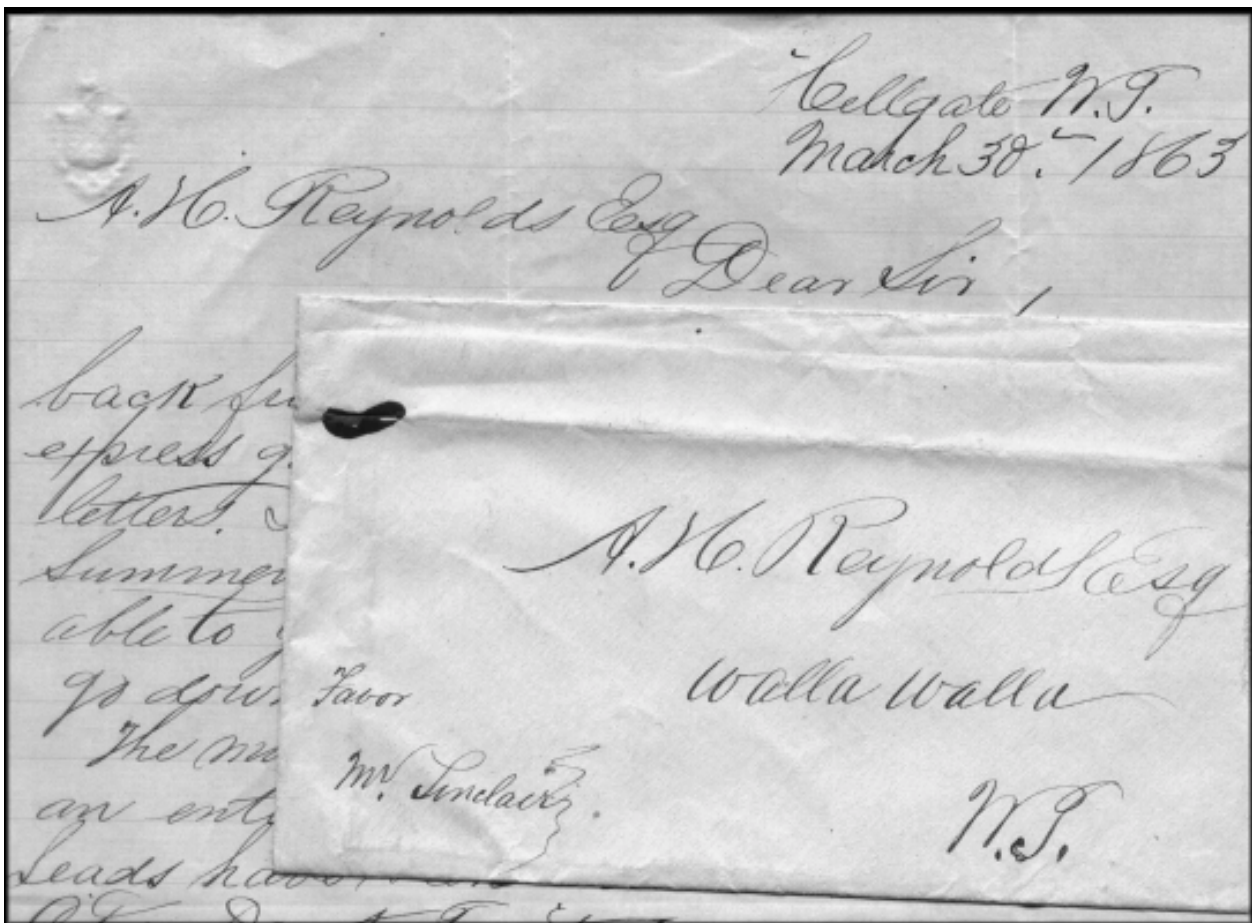 Hellgate W.T.
March 30. 1863
A. H. Reynolds Esq
Dear Sir,
back
express
letters.
Summer
able to
go down
The
an
Leads have
A. H. Reynolds Esq
Walla Walla
W.T.
Favor
Mr. Sinclair